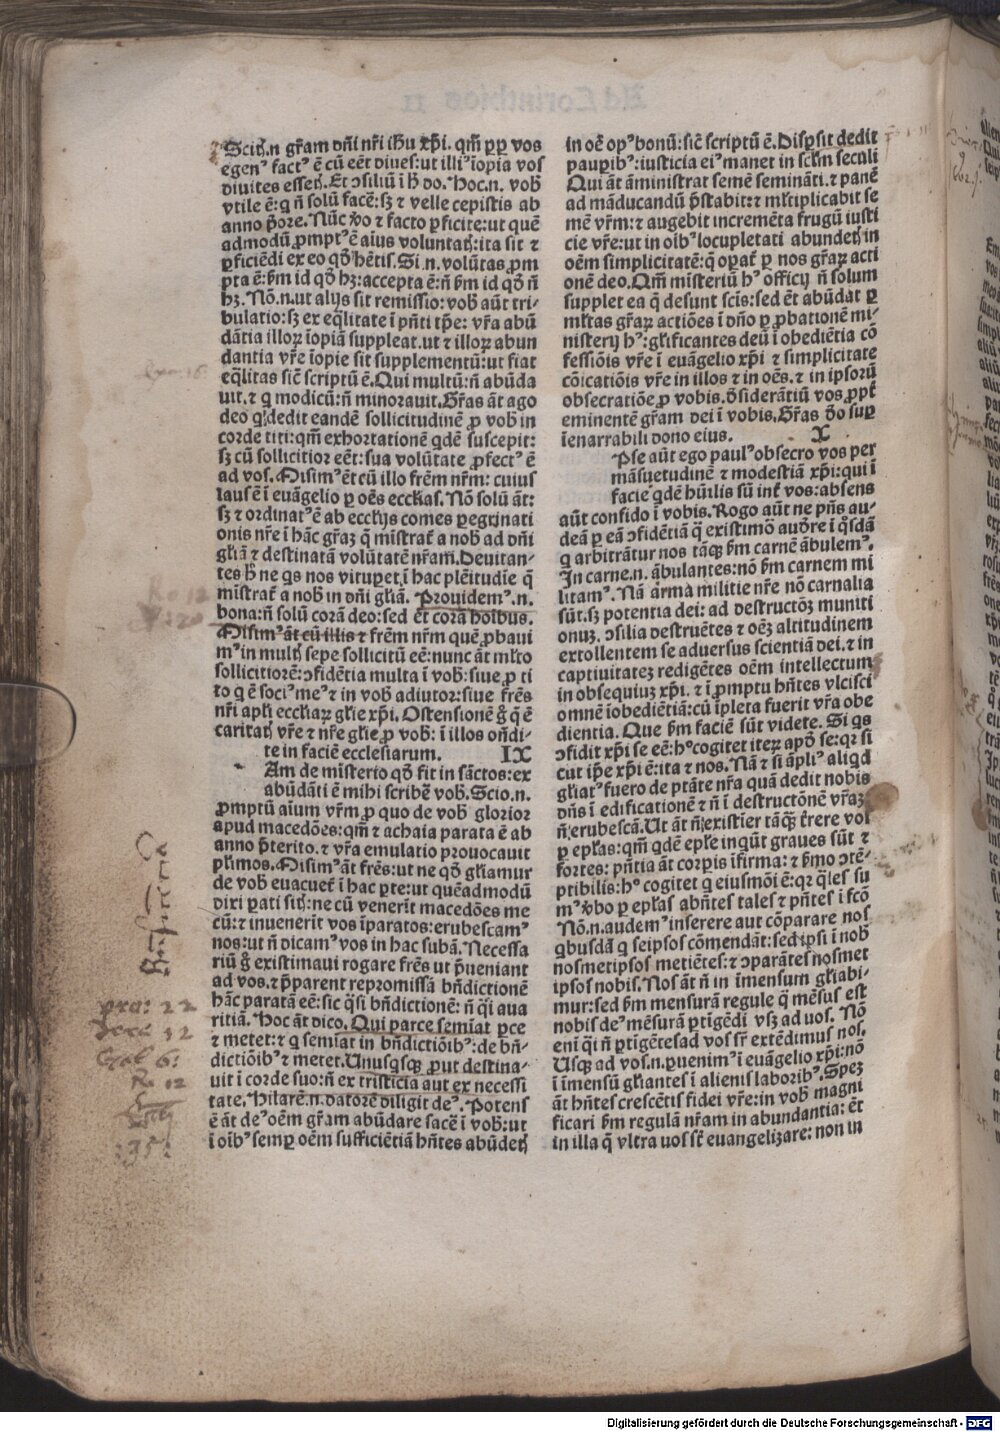 Scitꝭ.n gr̄am dn̄i nr̄i ih̄u xp̄i. qm̄ ꝓpt vos
egenꝰ factꝰ ē cū eēt diues: ut illiꝰ īopia vos
divites essetꝭ. Et ↄsiliū ī ħ do. Hoc.n. vob̄
vtile ē: q̄ n̄ solū facē: sꝫ ⁊ velle cepistis ab
anno p̄ore. Nūc v̄o ⁊ facto ꝑficite: ut quē
admodū ꝓmptꝰ ē aīus voluntatꝭ: ita sit ⁊
ꝑficiēdi ex eo qd̄ hētis. Si.n. volūtas ꝓm
pta ē: ẜm id qd̄ hꝫ: accepta ē: n̄ ẜm id qd̄ n̄
hꝫ. Nō.n. ut alijs sit remissio: vob̄ aūt tri-
bulatio: sꝫ ex eq̄litate ī pn̄ti tp̄e: vr̄a abū
dātia illoꝝ īopiā suppleat. ut ⁊ illoꝝ abun
dantia vr̄e īopie sit supplementū: ut fiat
eq̄litas sic̄ scriptū ē. Qui multū: n̄ abūda
uit. ⁊ q modicū: n̄ minorauit. Gr̄as āt ago
deo q dedit eandē sollicitudinē ꝓ vob̄ in
corde titi: qm̄ exhortationē qdē suscepit:
sꝫ cū sollicitior eēt: sua volūtate ꝓfectꝰ ē
ad vos. Misimꝰ ēt cū illo frēm nr̄m: cuius
laus ē ī euāgelio ꝑ oēs eccl̄ias. Nō solū āt:
sꝫ ⁊ ordinatꝰ ē ab eccl̄ijs comes ꝑegrinati
onis nr̄e ī hāc gr̄aꝫ q̄ mīstrat̄ a nob̄ ad dn̄i
gl̄iā ⁊ destinatā volūtatē nr̄am. Deuitan-
tes ħ ne qs nos vituꝑet, ī hac plēitudīe q̄
mīstrat̄ a nob̄ in dn̄i gl̄iā. Prouidemꝰ.n.
bona: n̄ solū corā deo: sed ēt corā hoībus.
Misimꝰ āt cū illis ⁊ frēm nr̄m quē ꝓbaui
mꝰ in multꝭ sepe sollicitū eē: nunc āt ml̄to
sollicitiorē: ↄfidētia multa ī vob̄: siue ꝓ ti
to q ē sociꝰ meꝰ ⁊ in vob̄ adiutor: siue frēs
nr̄i apl̄i eccl̄iaꝝ gl̄ie xp̄i. Ostensionē g̊ q̄ ē
caritatꝭ vr̄e ⁊ nr̄e gl̄ie ꝓ vob̄: ī illos on̄di-
te in faciē ecclesiarum. IX
Am de mīsterio qd̄ fit in sāctos: ex
abūdāti ē mihi scribē vob̄. Scio.n.
ꝓmptū aīum vr̄m ꝓ quo de vob̄ glorior
apud macedōes: qm̄ ⁊ achaia parata ē ab
anno p̄terito. ⁊ vr̄a emulatio prouocauit
pl̄imos. Misimꝰ āt frēs: ut ne qd̄ gl̄iamur
de vob̄ euacuet̄ ī hac ꝑte: ut quēadmodū
dixi ꝑati sitꝭ: ne cū venerīt macedōes me
cū: ⁊ inuenerīt vos īparatos: erubescamꝰ
nos: ut n̄ dicamꝰ vos in hac subā. Necessa
riū g̊ existimaui rogare frēs ut p̄ueniant
ad vos. ⁊ p̄parent repromissā bn̄dictionē
hāc paratā eē: sic q̄si bn̄dictionē: n̄ q̄i aua
ritiā. Hoc āt dico. Qui parce semīat ꝑce
⁊ metet: ⁊ q semīat in bn̄dictiōibꝰ: de bn̄-
dictiōibꝰ ⁊ metet. Unusqsqꝫ ꝓut destina-
uit ī corde suo: n̄ ex tristicia aut ex necessi
tate. Hilarē.n. datorē diligit deꝰ. Potens
ē āt deꝰ oēm gr̄am abūdare facē ī vob̄: ut
ī oībꝰ semꝑ oēm sufficiētiā hn̄tes abūdetꝭ
in oē opꝰ bonū: sic̄ scriptū ē. Disꝑsit dedit
pauꝑibꝰ: iusticia eiꝰ manet in scl̄m seculi
Qui āt āministrat semē semināti. ⁊ panē
ad māducandū p̄stabit: ⁊ ml̄tiplicabit se
mē vr̄m: ⁊ augebit incremēta frugū iusti
cie vr̄e: ut in oībꝰ locupletati abundetꝭ in
oēm simplicitatē: q̄ oꝑat̄ ꝑ nos gr̄aꝝ acti
onē deo. Qm̄ misteriū hꝰ officij n̄ solum
supplet ea q̄ desunt scīs: sed ēt abūdat ꝑ
ml̄tas gr̄aꝝ actiōes ī dn̄o ꝑ ꝓbationē mi-
nisterij hꝰ: gl̄ificantes deū ī obediētia cō
fessiōis vr̄e ī euāgelio xp̄i ⁊ simplicitate
cōicatiōis vr̄e in illos ⁊ in oēs. ⁊ in ipsorū
obsecratiōe ꝓ vobis. d̄siderātiū vos ꝓpt̄
eminentē gr̄am dei ī vobis. Gr̄as d̄o suꝑ
īenarrabili dono eius. X
Pse aūt ego paulꝰ obsecro vos per
māsuetudinē ⁊ modestiā xp̄i: qui ī
facie qdē hūilis sū int̄ vos: absens
aūt confido ī vobis. Rogo aūt ne pn̄s au-
deā ꝑ eā ↄfidētiā q̄ existimō audēre ī q̄sdā
q arbitrātur nos tāqꝫ ẜm carnē ābulemꝰ.
In carne.n. ābulantes: nō ẜm carnem mi
litamꝰ. Nā arma militie nr̄e nō carnalia
sūt. sꝫ potentia dei: ad destructōꝫ muniti
onuꝫ. ↄsilia destruētes ⁊ oēꝫ altitudinem
extollentem se aduersus scientiā dei. ⁊ in
captiuitateꝫ redigētes oēm intellectum
in obsequiuꝫ xp̄i. ⁊ ī ꝓmptu hn̄tes vlcisci
omnē īobediētiā: cū īpleta fuerit vr̄a obe
dientia. Que ẜm faciē sūt videte. Si qs
ↄfidit xp̄i se eē: hꝰ cogitet iteꝝ apd̄ se: qꝛ si
cut ip̄e xp̄i ē: ita ⁊ nos. Nā ⁊ si āpliꝰ aliqd
gl̄iatꝰ fuero de ptāte nr̄a quā dedit nobis
dn̄s ī edificationē ⁊ n̄ ī destructōnē vr̄aꝫ
n̄ erubescā. Ut āt n̄ existīer tāqꝫ t̄rere vos
ꝑ epl̄as: qm̄ qdē epl̄e inqūt graues sūt ⁊
fortes: pn̄tia āt corpis īfirma: ⁊ ẜmo ↄtē-
ptibilis: hꝰ cogitet q eiusmōi ē: qꝛ q̄les su
mꝰ v̄bo ꝑ epl̄as abn̄tes tales ⁊ pn̄tes ī fcō
Nō.n. audemꝰ inserere aut cōparare nos
qbusdā q seipsos cōmendāt: sed ipsi ī nob̄
nosmetipsos metiētes: ⁊ ↄparātes nosmet
ipsos nobis. Nos āt n̄ in īmensum gl̄iabi-
mur: sed ẜm mensurā regule q̄ mēsus est
nobis deꝰ mēsurā ꝑtigēdi vsqꝫ ad uos. Nō
eni q̄i n̄ ꝑtigētes ad vos sr̄ extēdimus nos.
Usqꝫ ad vos.n. ꝑuenimꝰ ī euāgelio xp̄i: nō
ī īmēsū gl̄iantes ī alienis laboribꝰ. Speꝫ
āt hn̄tes crescētis fidei vr̄e: in vob̄ magni
ficari ẜm regulā nr̄am in abundantia: ēt
in illa q̄ vltra uos st̄ euangelizare: non in
Ro 12
pro: 22
Gal 6:
Ro 12
:35:
Digitalisierung gefördert durch die Deutsche Forschungsgemeinschaft - DFG